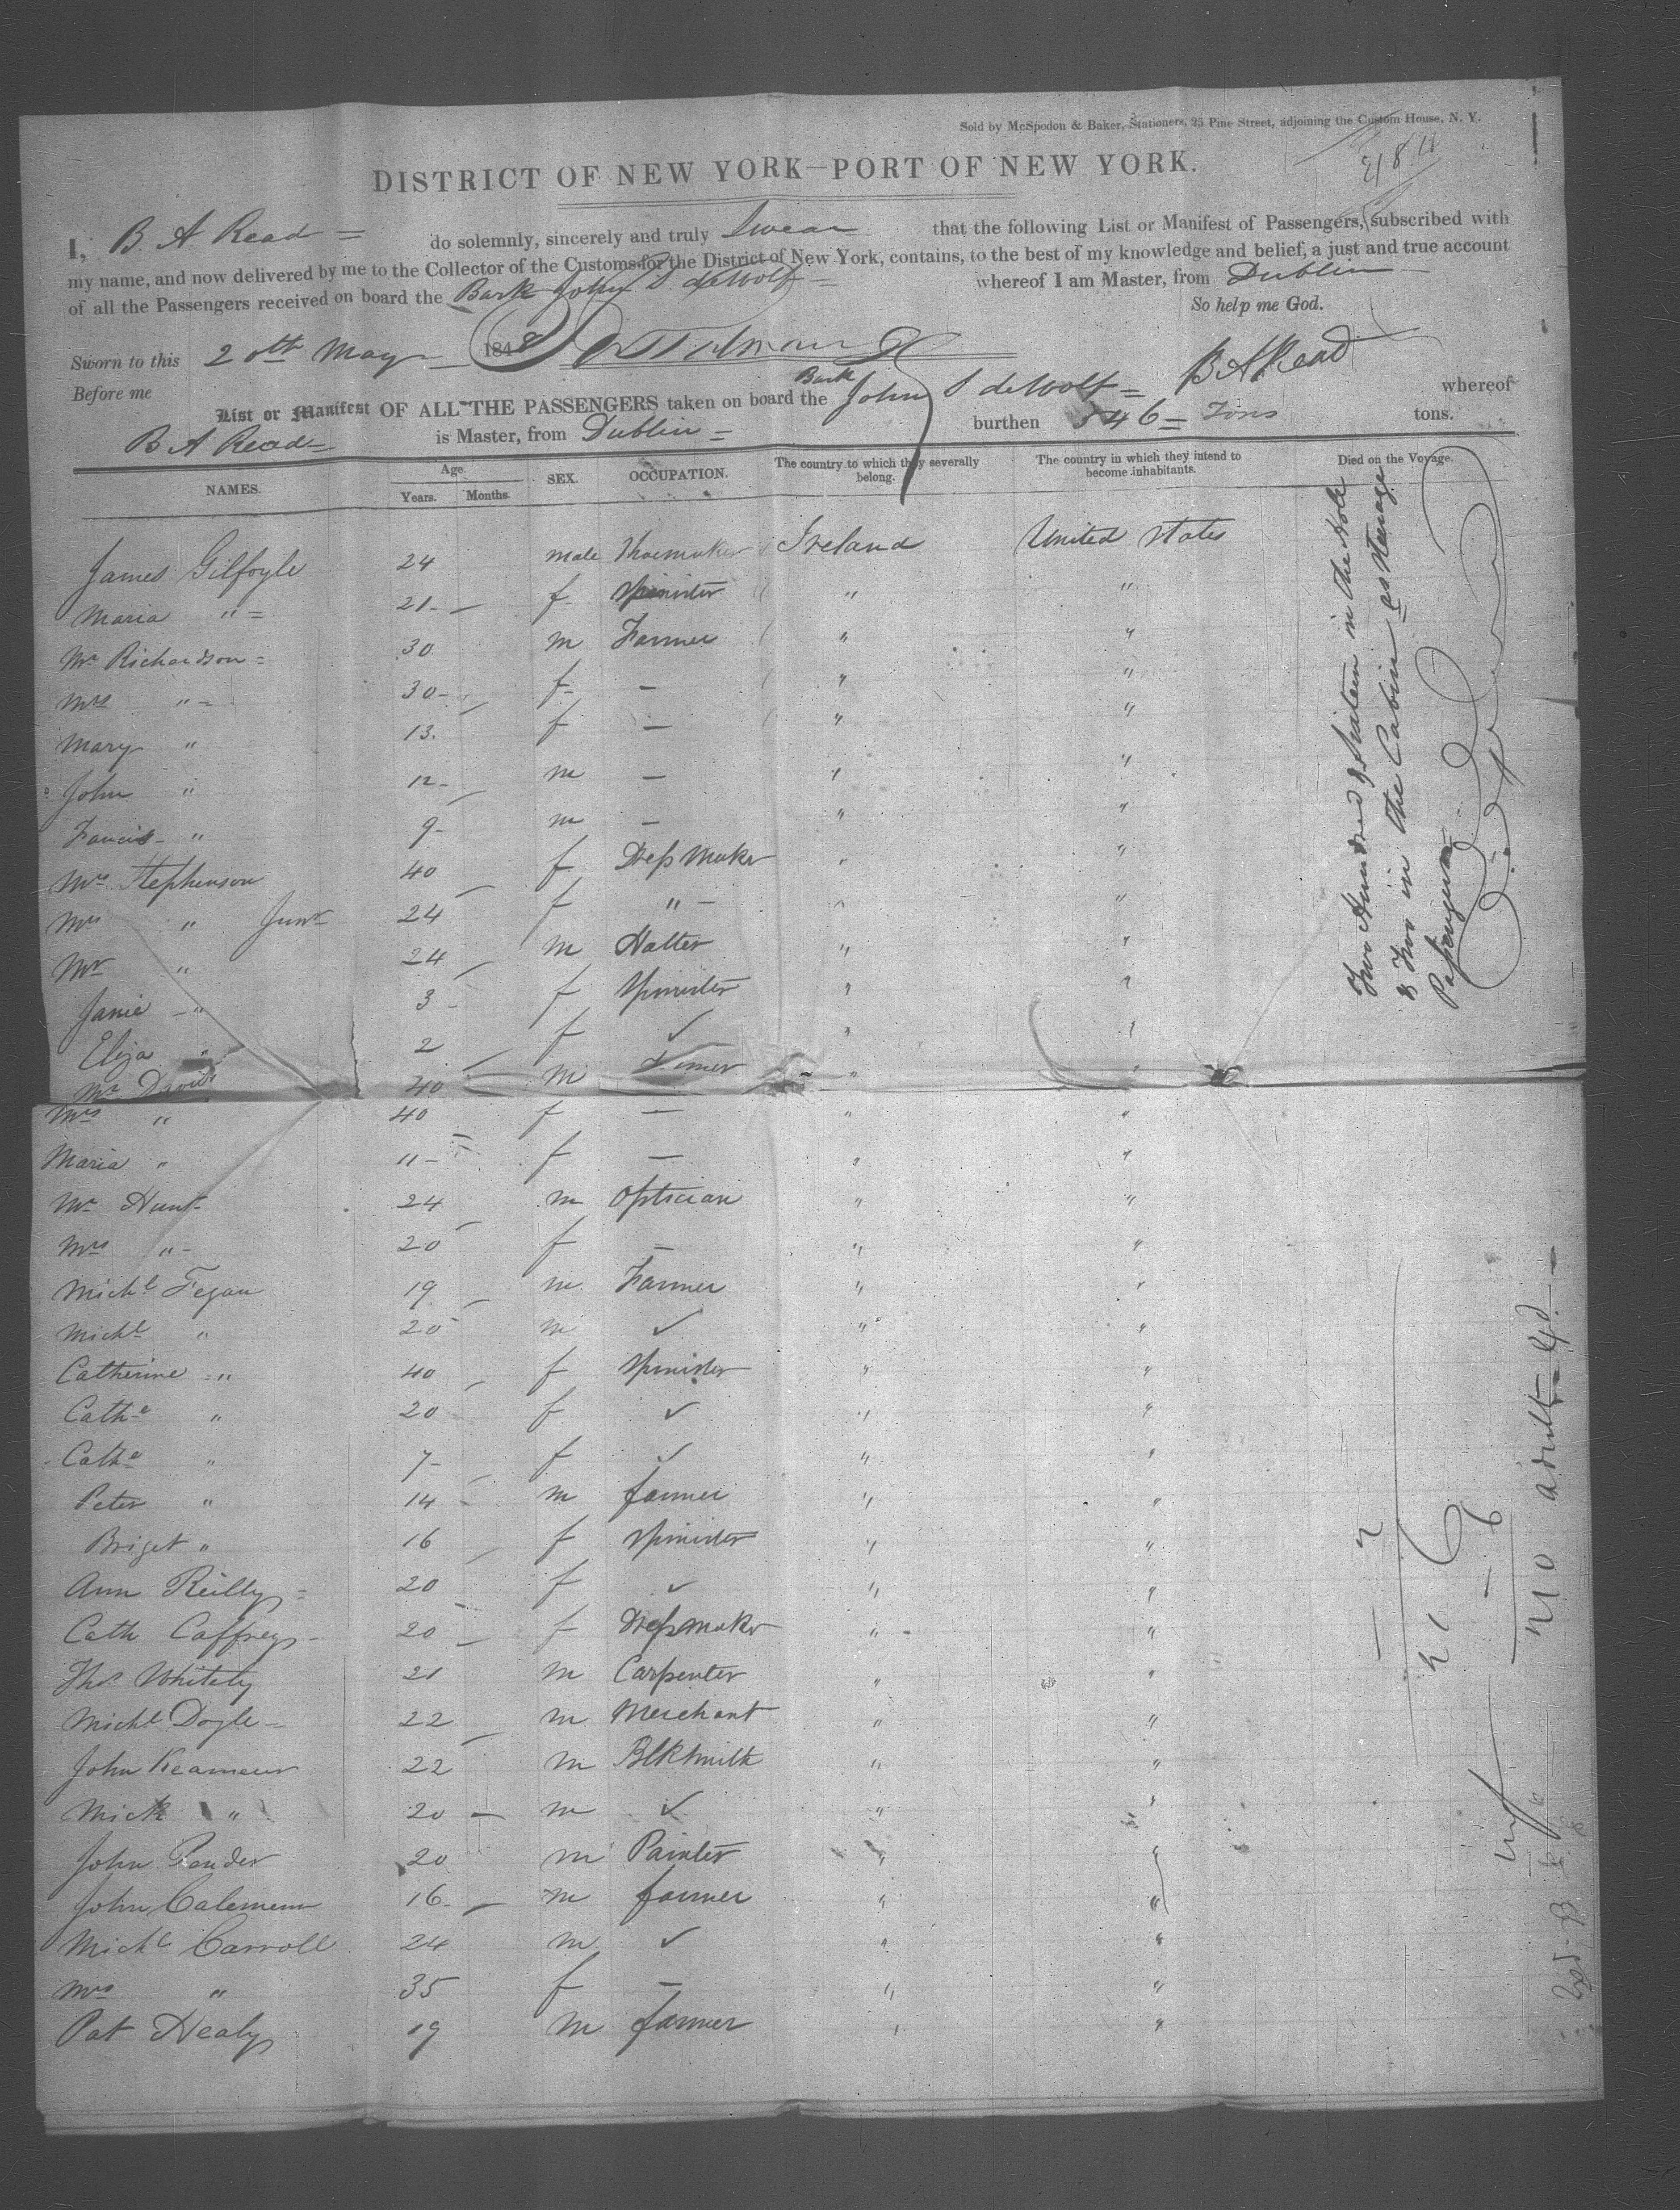 Sold by McSpedon & Baker, Stationers, 25 Pine Street, adjoining the Custom House, N. Y.
DISTRICT OF NEW YORK—PORT OF NEW YORK.
I, B. A Read = do solemnly, sincerely and truly Swear that the following List or Manifest of Passengers, subscribed with
my name, and now delivered by me to the Collector of the Customs for the District of New York, contains, to the best of my knowledge and belief, a just and true account
of all the Passengers received on board the Bark John S deWolf = whereof I am Master, from Dublin
So help me God.
Sworn to this 20th May 1848
Before me B A Read
List or Manifest OF ALL THE PASSENGERS taken on board the Bark John S deWolf = whereof
B A Read = is Master, from Dublin = burthen 546 = Tons tons.
NAMES. Age. Years. Months. SEX. OCCUPATION. The country to which they severally belong. The country in which they intend to become inhabitants. Died on the Voyage.
James Gilfoyle 24 male Shoemaker Ireland United States
Maria " = 21 - f Spinister " "
Mr Richardson = 30 m Farmer " "
Mrs " = 30 - f - — " "
Mary " 13. f — " "
John " 12 - m — " "
Francis - " 9 - m — " "
Mrs Stephenson 40 f Dress Maker " "
Mrs " Junr 24 f " - " "
Mr " 24 m Hatter " "
Janie - " 3 - f Spinister " "
Eliza " 2 f ✓ " "
Mr Davis 40 m " "
Mrs " 40 f — " "
Maria " 11 - f — " "
Mr Hunt - 24 m Optician " "
Mrs " - 20 f — " "
Michl Fegan 19 m Farmer " "
Michl " 20 m ✓ " "
Catherine " 40 f Spinister " "
Cathe " 20 f ✓ " "
Cathe " 7 - f ✓ " "
Peter " 14 - m farmer " "
Briget " 16 f Spinister " "
Ann Reilly = 20 f ✓ " "
Cath Caffrey - 20 f Dressmaker " "
Thos Whitely 21 m Carpenter " "
Michl Doyle - 22 m Merchant " "
John 22 m Blksmith " "
Mick " 20 - m ✓ " "
John 20 m Painter " "
John 16 - m farmer " "
Michl Carroll 24 m ✓ " "
Mrs " 35 f — " "
Pat Healy 19 m farmer " "
Two Hundred & sixteen in the Hole
& Two in the Cabin as steerage
Passengers
2
216
- 6
210 adults